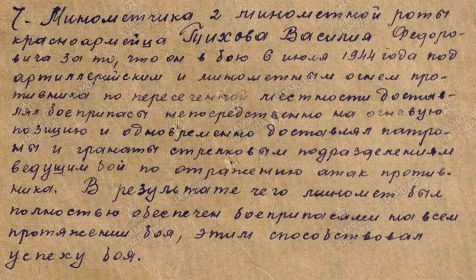 7. Минометчика 2 минометной роты
красноармейца Тихова Василия Федоро-
вича за то, что он в бою 6 июля 1944 года под
артиллерийским и минометным огнем про-
тивника по пересеченной местности достав-
лял боеприпасы непосредственно на огневую
позицию и одновременно доставлял патро-
ны и гранаты стрелковым подразделениям
ведущим бой по отражению атак против-
ника. В результате чего миномет был
полностью обеспечен боеприпасами на всем
протяжении боя, этим способствовал
успеху боя.